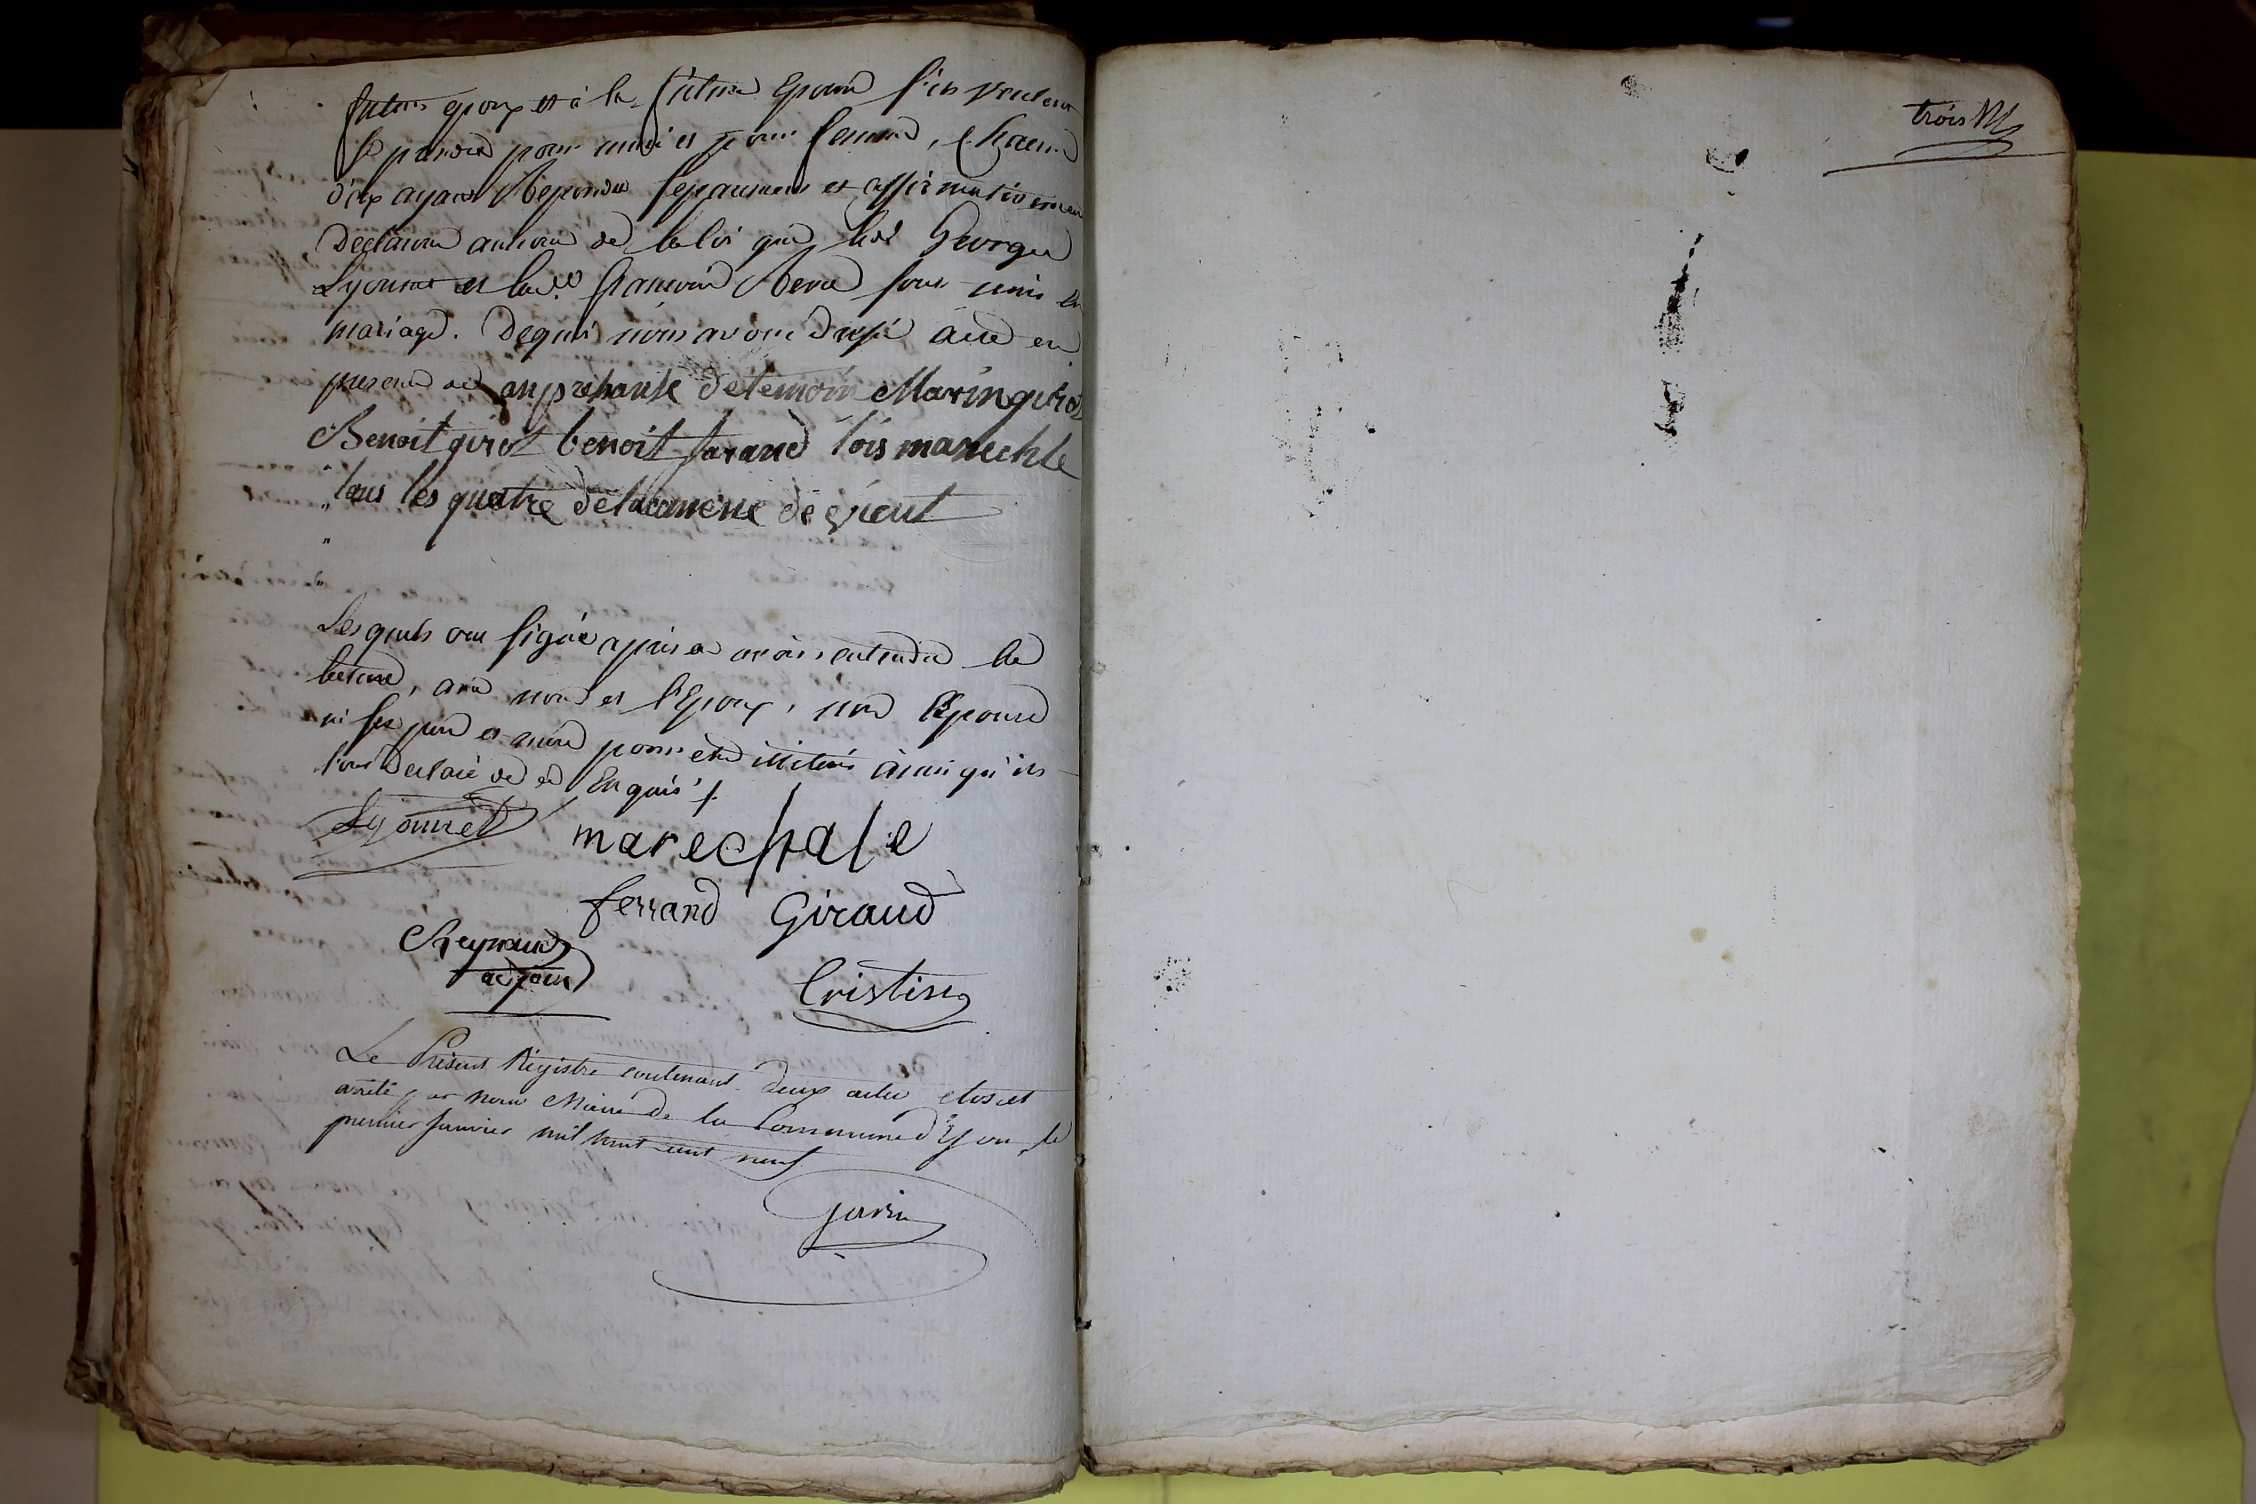 futurs epoux et à la future Epouse s'ils veulent
se prendre pour mari et pour femme, Chacun
d'eux ayant Repondu separement et affirmativement
Declarons au nom de la loi que led. George
Lyonnet et lad.e francoise sont unis en
mariage. De quoi nous avons dressé acte en
presence de an prehanse de temoin Marin girot
Benoit girot benoit farand lois marechle
tous les quatre de lacomene de
Lesquels ont signé apres en avoir entendu la
lecture, avec nous et l'Epoux, non l'Epouse
ni ses pere et mere pour etre illiterés ainsi qu'ils
l'ont declaré de ce Enquis ./.
Lyonnet marechale
ferrand Giraud
Reynaud
adjoint Cristin
Le Présent Régistre contenant deux actes clos et
arrété par nous Maire de la Commune d' le
premier Janvier mil huit cent neuf
trois